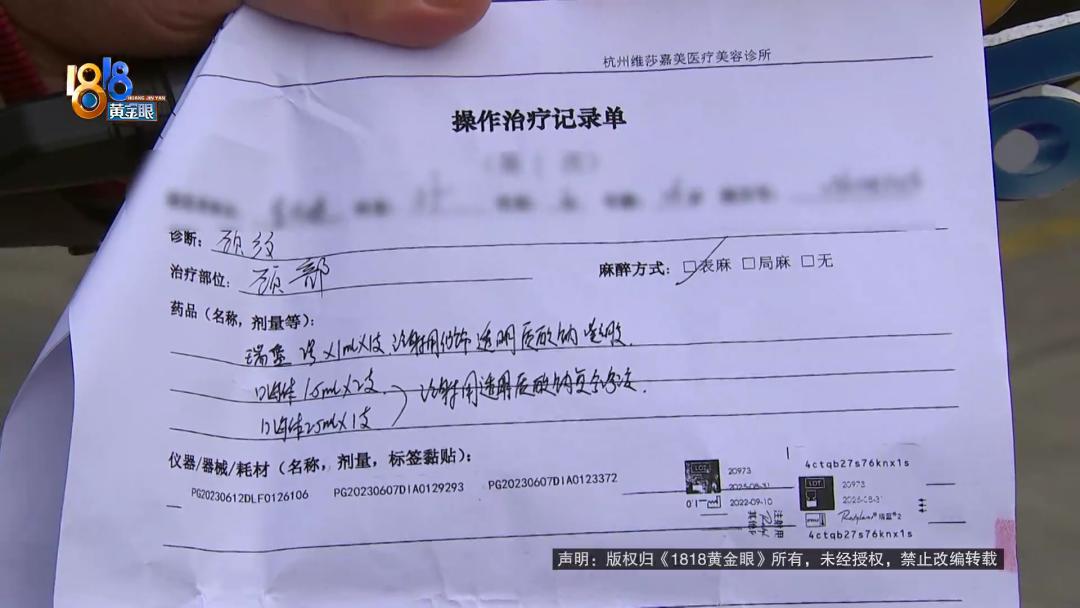 1818
HUANG JIN YAN
黄金眼
杭州维莎嘉美医疗美容诊所
操作治疗记录单
诊断：颈纹
治疗部位：颈部
麻醉方式：□表麻 □局麻 □无
药品（名称，剂量等）：
瑞蓝 2号×1ml×1支 注射用修饰透明质酸钠凝胶.
嗨体1.5ml×2支
注射用透明质酸钠复合溶液.
嗨体2.5ml×1支
仪器/器械/耗材（名称，剂量，标签黏贴）：
PG20230612DLF0126106 PG20230607DIA0129293 PG20230607DIA0123372
LOT 20973
2022-09-10
4ctqb27s76knx1s
LOT 20973
Restylane® 瑞蓝®2
4ctqb27s76knx1s
注射用
声明：版权归《1818黄金眼》所有，未经授权，禁止改编转载